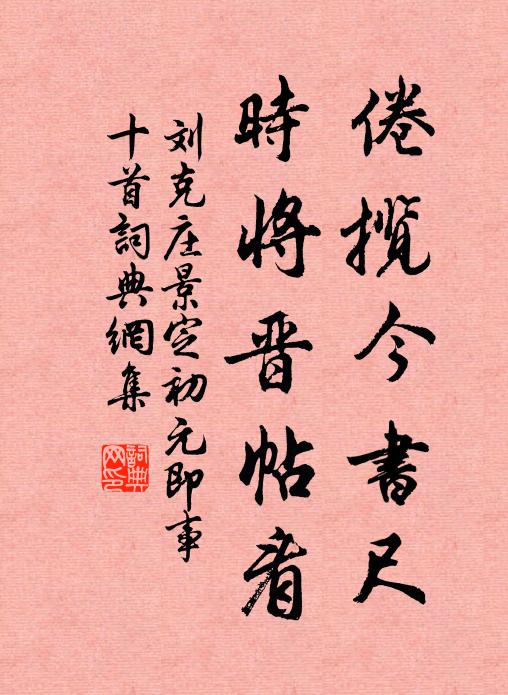 倦攬今書尺
時將晋帖看
刘克庄景定初元即事
十首詞典網集
詞典网印